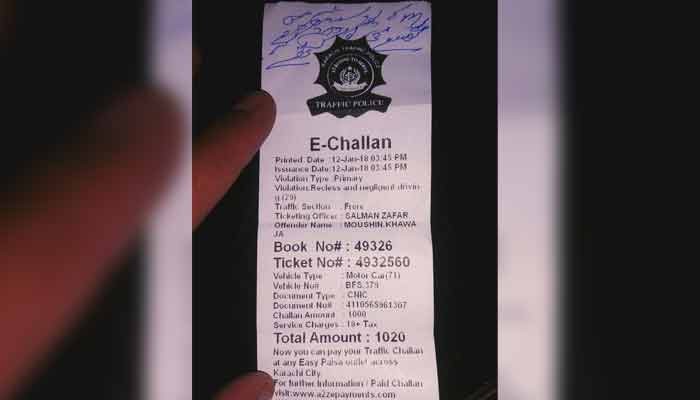 KARACHI TRAFFIC POLICE
TRAFFIC POLICE
E-Challan
Printed Date :12-Jan-18 03:45 PM
Issuance Date:12-Jan-18 03:45 PM
Violation Type :Primary
Violation:Recless and negligent drivin
g.(29)
Traffic Section : Frere
Ticketing Officer : SALMAN ZAFAR
Offender Name : MOUSHIN.KHAWA
JA
Book No# : 49326
Ticket No# : 4932560
Vehicle Type : Motor Car(71)
Vehicle No# : BFS.379
Document Type : CNIC
Document No# :
Challan Amount : 1000
Service Charges : 10+ Tax
Total Amount : 1020
Now you can pay your Traffic Challan
at any Easy Paisa outlet across
Karachi City.
For further Information / Paid Challan
visit:www.a2zepayments.com